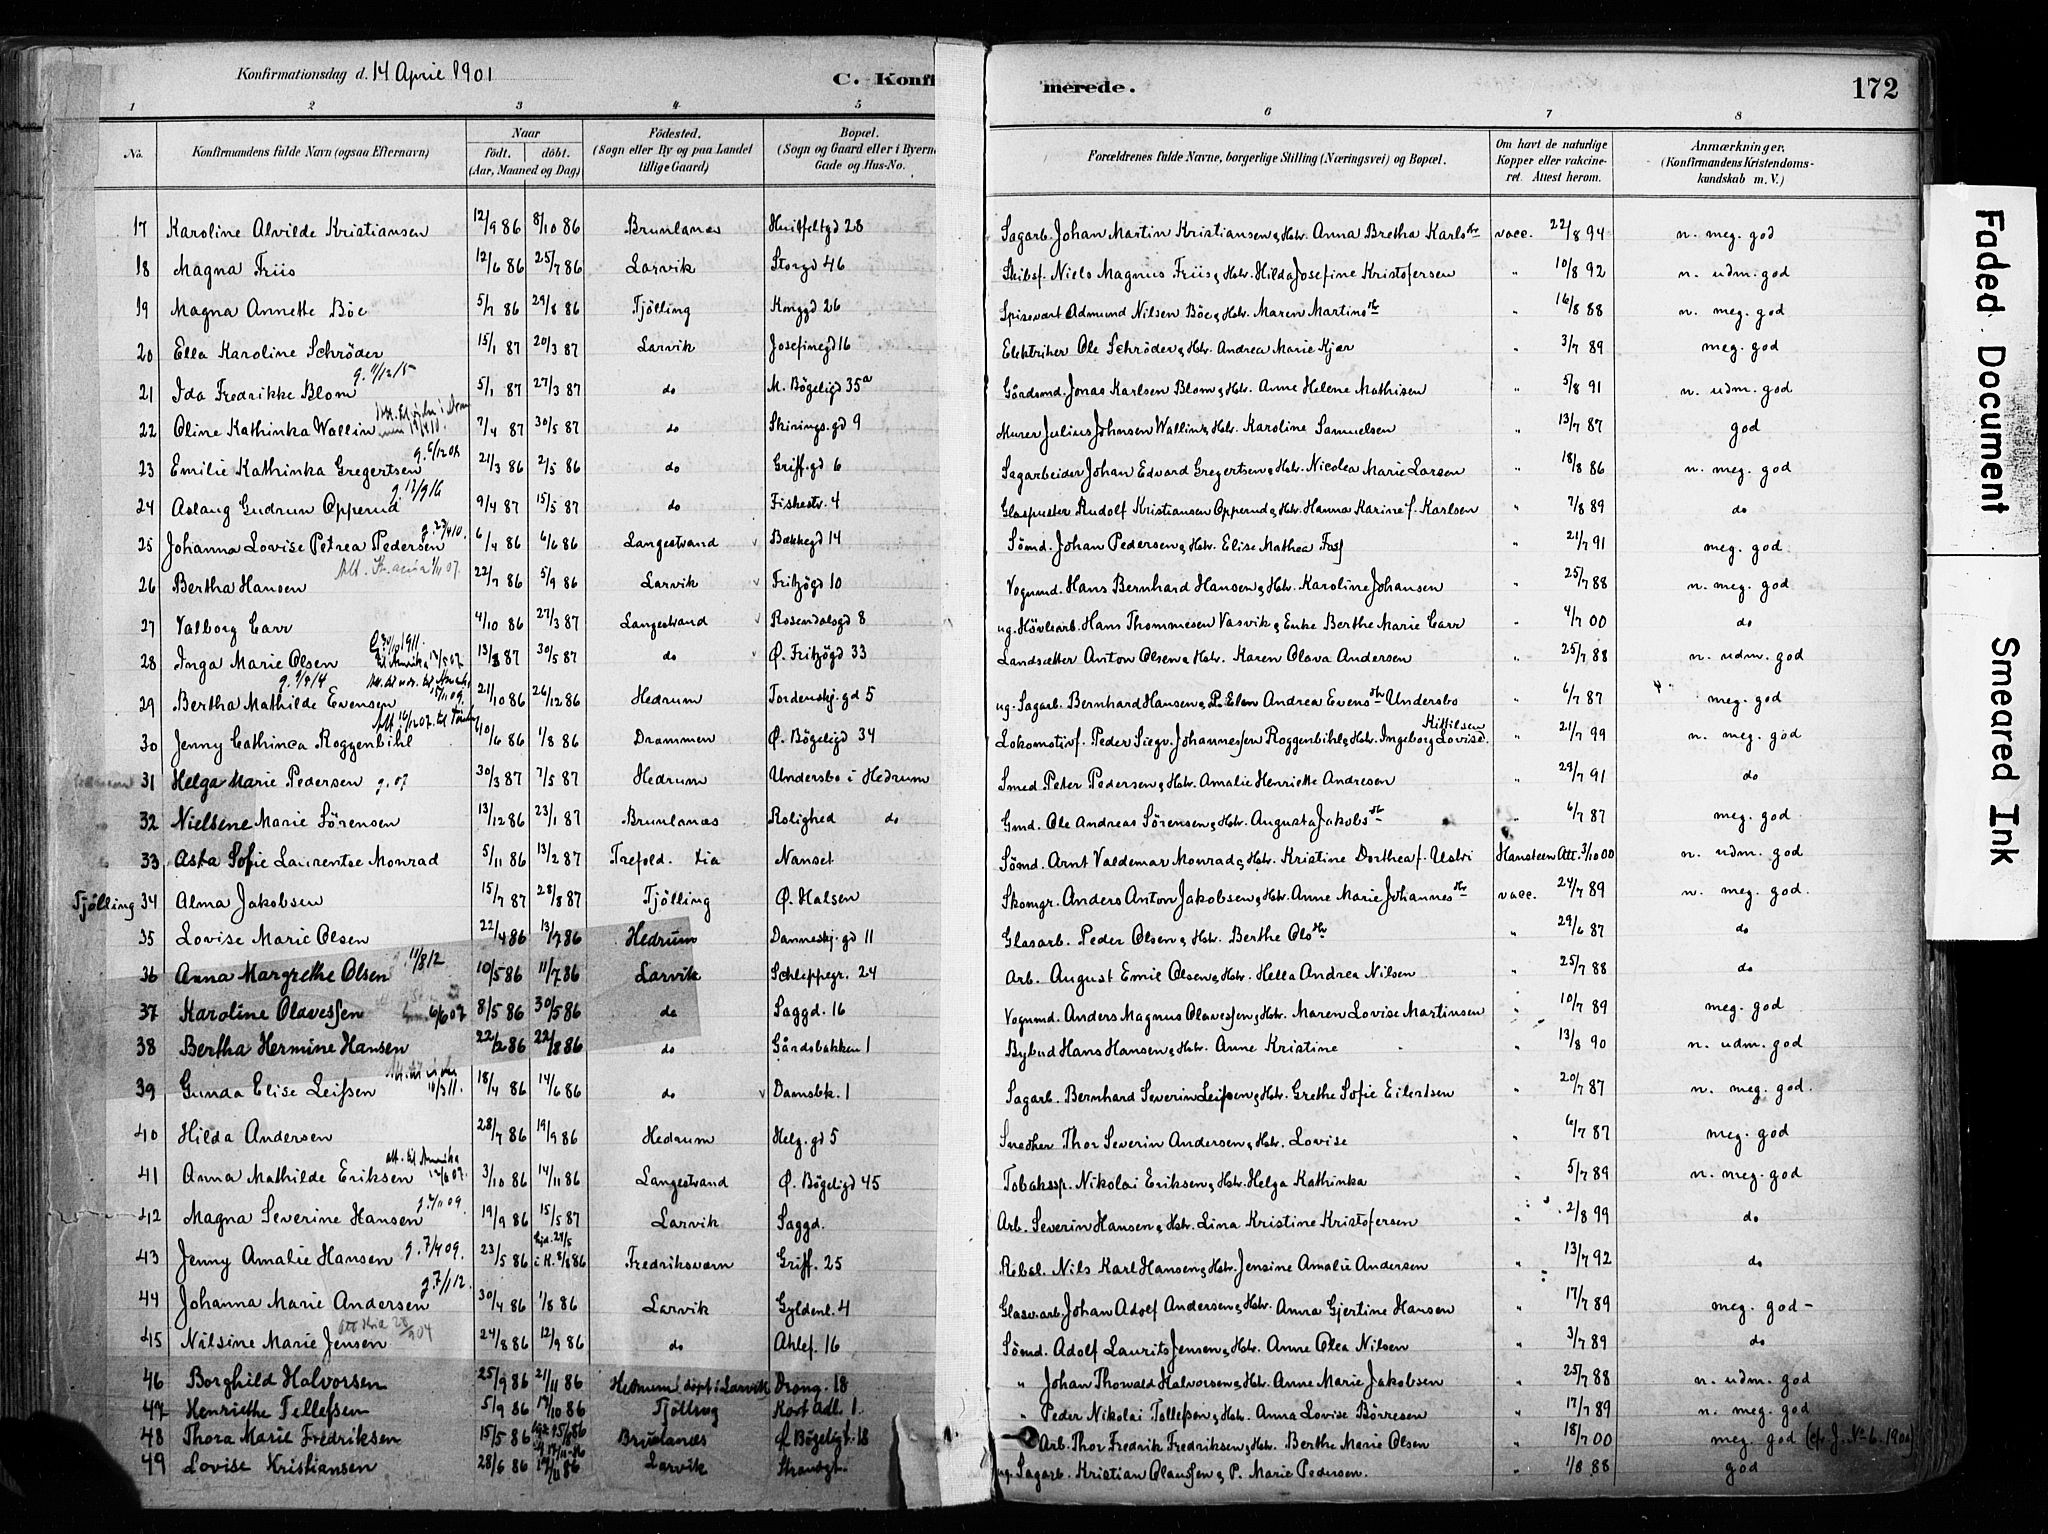 Konfirmationsdag d. 14 April 1901 C. Konfi merede. 172
1 2 3 4 5 6 7 8
No. Konfirmandens fulde Navn (ogsaa Efternavn) Naar födt. döbt. (Aar, Maaned og Dag) Födested. (Sogn eller By og paa Landet tillige Gaard) Bopæl. (Sogn og Gaard eller i Byerne Gade og Hus-No. Forældrenes fulde Navne, borgerlige Stilling (Næringsvei) og Bopæl. Om havt de naturlige Kopper eller vakcineret. Attest herom. Anmærkninger. (Konfirmandens Kristendomskundskab m. V.)
17 Karoline Alvilde Kristiansen 12/9 86 8/10 86 Brunlanæs Huitfeltgd 28 Sagarb. Johan Martin Kristiansen & Hstr. Anna Bretha Karlsdtr vacc. 22/8 94 n. meg. god
18 Magna Friis 12/6 86 25/7 86 Larvik Storgd 46 Skibsf. Niels Magnus Friis & Hstr. Hilda Josefine Kristofersen " 10/8 92 n. udm. god
19 Magna Annette Böe 5/7 86 29/8 86 Tjölling Konggd 26 Spisevært Admund Nilsen Böe & Hstr. Maren Martinsdtr " 16/8 88 n. meg. god
20 Ella Karoline Schröder 15/1 87 20/3 87 Larvik Josefinegd 16 Elektriker Ole Schröder & Hstr. Andrea Marie Kjær " 3/7 89 meg. god
21 Ida Fredrikke Blom g. 11/12 15 5/1 87 27/3 87 do M. Bögeligd 35a Gårdsmd. Jonas Karlsen Blom & Hstr. Anne Helene Mathisen " 5/8 91 n. udm. god
22 Oline Kathinka Wallin 7/4 87 30/5 87 do Skirings.gd 9 Murer Julius Johnsen Wallin & Hstr. Karoline Samuelsen " 13/7 87 god
23 Emilie Kathinka Gregertsen g. 6/12 08 21/3 86 2/5 86 do Griff.gd 6 Sagarbeider Johan Edvard Gregertsen & Hstr. Nicolea Marie Larsen " 18/8 86 n. meg. god
24 Aslaug Gudrun Opperud g. 17/9 16 9/4 87 15/5 87 do Fiskestr. 4 Glaspuster Rudolf Kristiansen Opperud & Hstr. Hanna Karine f. Karlsen " 7/8 89 do
25 Johanna Lovise Petrea Pedersen g. 23/4 10. 6/4 86 6/6 86 Langestrand Bækkegd 14 Sömd. Johan Pedersen & Hstr. Elise Mathea Foss " 21/7 91 meg. god
26 Bertha Hansen 22/7 86 5/9 86 Larvik Fritzögd 10 Vognmd. Hans Bernhard Hansen & Hstr. Karoline Johansen " 25/7 88 n. meg. god
27 Valborg Carr 4/10 86 27/3 87 Langestrand Rosendalsgd 8 ug. Hövlearb. Hans Thommesen Vasvik & Enke Berthe Marie Carr " 4/7 00 do
28 Inga Marie Olsen 13/3 87 30/5 87 do Ø. Fritzögd 33 Landsætter Anton Olsen & Hstr. Karen Olava Andersen " 25/7 88 n. udm. god
29 Bertha Mathilde Evensen g. 9/4 14 21/10 86 26/12 86 Hedrum Tordenskj.gd 5 ug. Sagarb. Bernhard Hansen & P. Elen Andrea Evensdtr Undersbo " 6/7 87 meg. god
30 Jenny Cathinca Roggenbihl 10/6 86 1/8 86 Drammen Ø. Bögeligd 34 Lokomotivf. Peder Siegv. Johannessen Roggenbihl & Hstr. Ingeborg Lovise Kittilsen " 21/7 99 n. meg. god
31 Helga Marie Pedersen g. 07 30/3 87 7/5 87 Hedrum Undersbo i Hedrum Smed Peter Pedersen & Hstr. Amalie Henriette Andresen " 23/7 91 do
32 Nielsene Marie Sörensen 13/12 86 23/1 87 Brunlanæs Rolighed do Gmd. Ole Andreas Sörensen & Hstr. Augusta Jakobsdtr " 6/7 87 meg. god
33 Asta Sofie Laurentse Monrad 5/11 86 13/2 87 Trefold. Kia Nanset Sömd. Arnt Valdemar Monrad & Hstr. Kristine Dorthea f. Ustvi Hansteen Att. 3/10 00 n. udm. god
Tjölling 34 Alma Jakobsen 15/7 87 28/8 87 Tjölling Ø. Halsen Skomgr. Anders Anton Jakobsen & Hstr. Anne Marie Johannesdtr vacc. 24/7 89 n. meg. god.
35 Lovise Marie Olsen 22/4 86 13/7 86 Hedrum Danneskj.gd 11 Glasarb. Peder Olsen & Hstr. Berthe Olsdtr " 29/6 87 do
36 Anna Margrethe Olsen 11/8 12 10/5 86 11/7 86 Larvik Schleppegr. 24 Arb. August Emil Olsen & Hstr. Hella Andrea Nilsen " 25/7 88 do
37 Karoline Olavessen 6/6 07 8/5 86 30/5 86 do Saggd. 16 Vognmd. Anders Magnus Olavessen & Hstr. Maren Lovise Martinsen " 10/7 89 meg. god
38 Bertha Hermine Hansen 22/2 86 22/8 86 do Gårdsbakken 1 Bybud Hans Hansen & Hstr. Anne Kristine " 13/8 90 n. udm. god
39 Gunda Elise Leifsen 10/3 11. 18/4 86 14/6 86 do Damsbk. 1 Sagarb. Bernhard Severin Leifsen & Hstr. Grethe Sofie Eilertsen " 20/7 87 n. meg. god.
40 Hilda Andersen 28/7 86 19/9 86 Hedrum Helg.gd 5 Snedker Thor Severin Andersen & Hstr. Lovise " 6/7 87 meg. god
41 Anna Mathilde Eriksen att. til Amerika 12/6 07. 3/10 86 14/11 86 Langestrand Ø. Bögeligd 45 Tobakssp. Nikolai Eriksen & Hstr. Helga Kathinka " 5/7 89 n. meg. god
42 Magna Severine Hansen 19/9 86 15/5 87 Larvik Saggd. Arb. Severin Hansen & Hstr. Lina Kristine Kristofersen " 2/8 99 do
43 Jenny Amalie Hansen g. 7/4 09. 23/5 86 Hjd. 29/5 i K. 8/8 86 Fredriksværn Griff. 25 Rebsl. Nils Karl Hansen & Hstr. Jensine Amalie Andersen " 13/7 92 do
44 Johanna Marie Andersen g 7/1 12. 30/4 86 1/8 86 Larvik Gyldenl. 4 Glasv.arb. Johan Adolf Andersen & Hstr. Anna Gjertine Hansen " 17/7 89 meg. god -
45 Nilsine Marie Jensen 24/8 86 12/9 86 do Ahlef. 16 Sömd. Adolf Laurits Jensen & Hstr. Anne Olea Nilsen " 3/7 89 do
46 Borghild Halvorsen 25/9 86 21/11 86 Hedrum (döpt i Larvik Drong. 18 " Johan Thorvald Halvorsen & Hstr. Anne Marie Jakobsen " 25/7 88 n. udm. god
47 Henriethe Tellefsen 5/9 86 17/10 86 Tjölling Kort Adl. 1. " Peder Nikolai Tollefsen & Hstr. Anna Lovise Börresen " 17/7 89 n. meg. god
48 Thora Marie Fredriksen 15/5 86 Brunlanæs Ø Bögeligt. 18 Arb. Thor Fredrik Fredriksen & Hstr. Berthe Marie Olsen " 18/7 00 meg. god (cfr. J. No 6. 1900)
49 Lovise Kristiansen 28/6 86 14/11 86 Larvik Strandgt. ug. Sagarb. Kristian Olaussen & P. Marie Pedersen. " 1/8 88 god
Faded Document
Smeared Ink